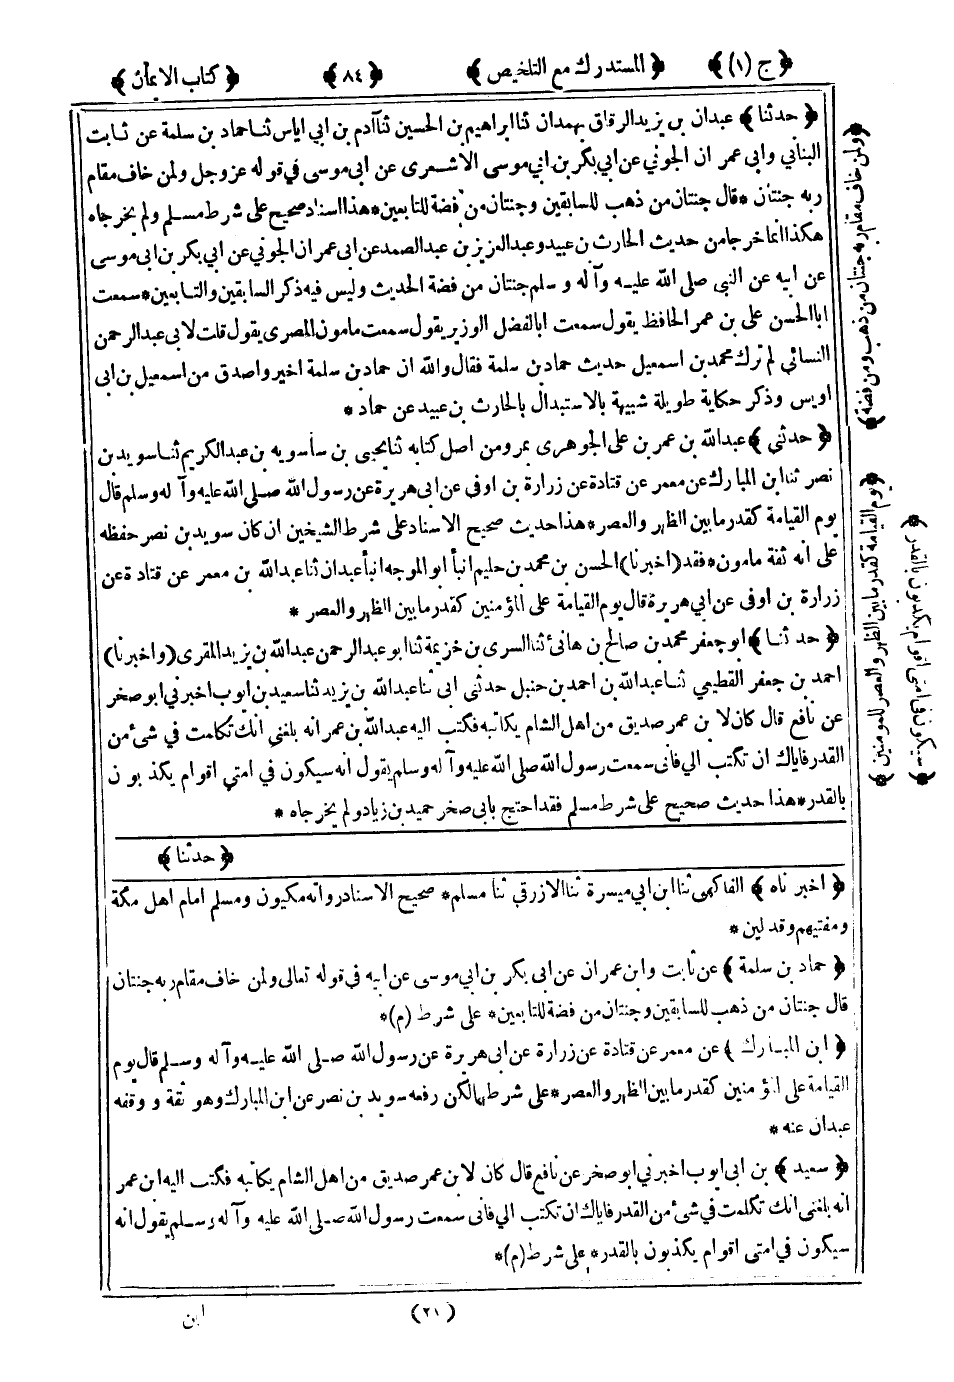 ﴿ ج (١) ﴾ ﴿ المستدرك مع التلخيص ﴾ ﴿ ٨٤ ﴾ ﴿ كتاب الايمان ﴾
﴿ حدثنا ﴾ عبدان بن يزيد الرقاق بهمدان ثنا ابراهيم بن الحسين ثنا آدم بن ابي اياس ثنا حماد بن سلمة عن ثابت
البناني وابى عمران الجوني عن ابي بكر بن ابي موسى الاشعرى عن ابى موسى في قوله عز وجل ولمن خاف مقام
ربه جنتان * قال جنتان من ذهب للسابقين وجنتان من فضة للتابعين * هذا اسناد صحيح على شرط مسلم ولم يخرجاه
هكذا انما خرجا من حديث الحارث بن عبيد وعبد العزيز بن عبد الصمد عن ابى عمران الجوني عن ابي بكر بن ابى موسى
عن ابيه عن النبى صلى الله عليه وآله وسلم جنتان من فضة الحديث وليس فيه ذكر السابقين والتابعين * سمعت
ابا الحسن على بن عمر الحافظ يقول سمعت ابا الفضل الوزير يقول سمعت مامون المصرى يقول قلت لابى عبد الرحمن
النسائي لم ترك محمد بن اسمعيل حديث حماد بن سلمة فقال والله ان حماد بن سلمة اخير واصدق من اسمعيل بن ابى
اويس وذكر حكاية طويلة شبيهة بالاستبدال بالحارث بن عبيد عن حماد *
﴿ حدثني ﴾ عبد الله بن عمر بن على الجوهرى بمرو من اصل كتابه ثنا يحيى بن ساسويه بن عبد الكريم ثنا سويد بن
نصر ثنا ابن المبارك عن معمر عن قتادة عن زرارة بن اوفى عن ابى هريرة عن رسول الله صلى الله عليه وآله وسلم قال
يوم القيامة كقدر ما بين الظهر والعصر * هذا حديث صحيح الاسناد على شرط الشيخين ان كان سويد بن نصر حفظه
على انه ثقة مامون * فقد (اخبرنا) الحسن بن محمد بن حليم انبأ ابو الموجه انبأ عبدان ثنا عبد الله بن معمر عن قتادة عن
زرارة بن اوفى عن ابي هريرة قال يوم القيامة على المؤمنين كقدر ما بين الظهر والعصر *
﴿ حدثنا ﴾ ابو جعفر محمد بن صالح بن هانئ ثنا السرى بن خزيمة ثنا ابو عبد الرحمن عبد الله بن يزيد المقرى (واخبرنا)
احمد بن جعفر القطيعي ثنا عبد الله بن احمد بن حنبل حدثنى ابى ثنا عبد الله بن يزيد ثنا سعيد بن ايوب اخبرني ابو صخر
عن نافع قال كان لابن عمر صديق من اهل الشام يكاتبه فكتب اليه عبد الله بن عمر انه بلغنى انك تكلمت في شئ من
القدر فاياك ان تكتب الي فانى سمعت رسول الله صلى الله عليه وآله وسلم يقول انه سيكون في امتي اقوام يكذبون
بالقدر * هذا حديث صحيح على شرط مسلم فقد احتج بابى صخر حميد بن زياد ولم يخرجاه *
﴿ حدثنا ﴾
﴿ اخبرناه ﴾ الفاكهى ثنا ابن ابي ميسرة ثنا الازرقي ثنا مسلم * صحيح الاسناد رواته مكيون ومسلم امام اهل مكة
ومفتيهم وقد لين *
﴿ حماد بن سلمة ﴾ عن ثابت وابن عمران عن ابى بكر بن ابي موسى عن ابيه في قوله تعالى ولمن خاف مقام ربه جنتان
قال جنتان من ذهب للسابقين وجنتان من فضة للتابعين * على شرط (م) *
﴿ ابن المبارك ﴾ عن معمر عن قتادة عن زرارة عن ابى هريرة عن رسول الله صلى الله عليه وآله وسلم قال يوم
القيامة على المؤمنين كقدر ما بين الظهر والعصر * على شرطهما لكن رفعه سويد بن نصر عن ابن المبارك وهو ثقة ووقفه
عبدان عنه *
﴿ سعيد ﴾ بن ابى ايوب اخبرني ابو صخر عن نافع قال كان لابن عمر صديق من اهل الشام يكاتبه فكتب اليه ابن عمر
انه بلغنى انك تكلمت في شئ من القدر فاياك ان تكتب الي فانى سمعت رسول الله صلى الله عليه وآله وسلم يقول انه
سيكون في امتى اقوام يكذبون بالقدر * على شرط (م) *
(٢١)
ابن
﴿ ولمن خاف مقام ربه جنتان من ذهب ومن فضة ﴾
﴿ يوم القيامة كقدر ما بين الظهر والعصر للمومنين ﴾
﴿ سيكون في امتى اقوام يكذبون بالقدر ﴾